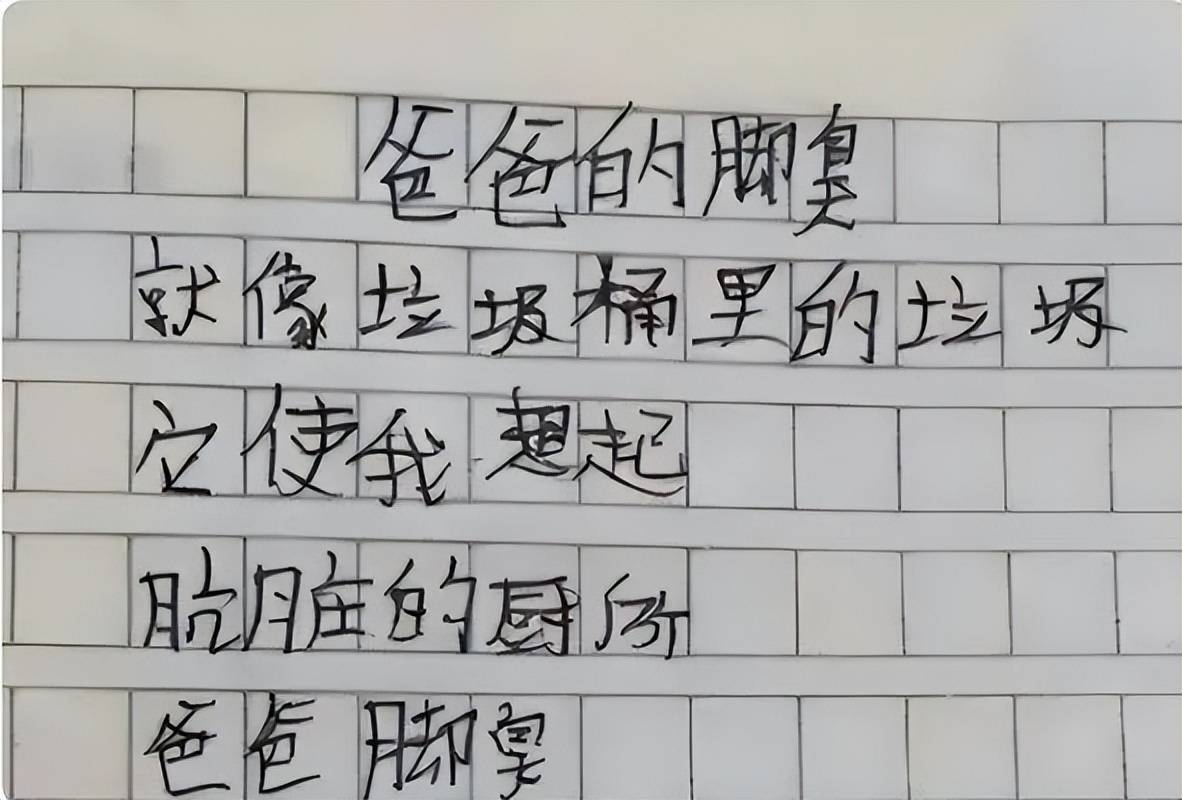 爸爸的脚臭
就像垃圾桶里的垃圾
它使我想起
肮脏的厨所
爸爸脚臭